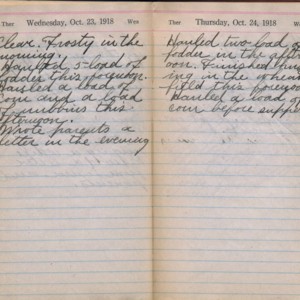 Ther Wednesday, Oct. 23, 1918 Wea
Clear. Frosty in the
morning.
Hauled 5-load of
fodder this forenoon.
Hauled a load of
corn and a load
of nubbins this
afternoon.
Wrote parents a
letter in the evening
Ther Thursday, Oct. 24, 1918 Wea
Hauled two load of
fodder in the after
noon. Finished
ing in the wheat
field this forenoon
Hauled a load of
corn before supper